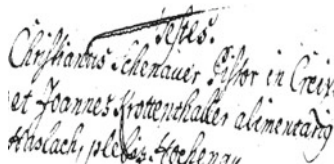 Testes.
Christianus Schenauer Pistor in Creiz
et Joannes Krottenthaller alimentarig
Haslach, plebis